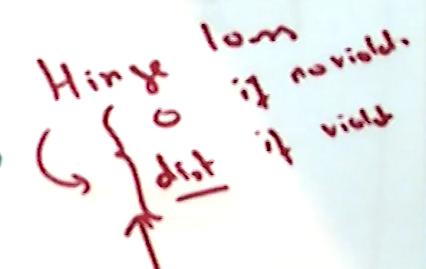 Hinge loss
0 if no viold.
dist if viold